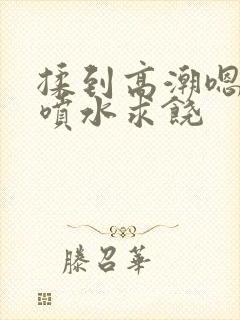 揉到高潮嗯
喷水求饶
滕召华